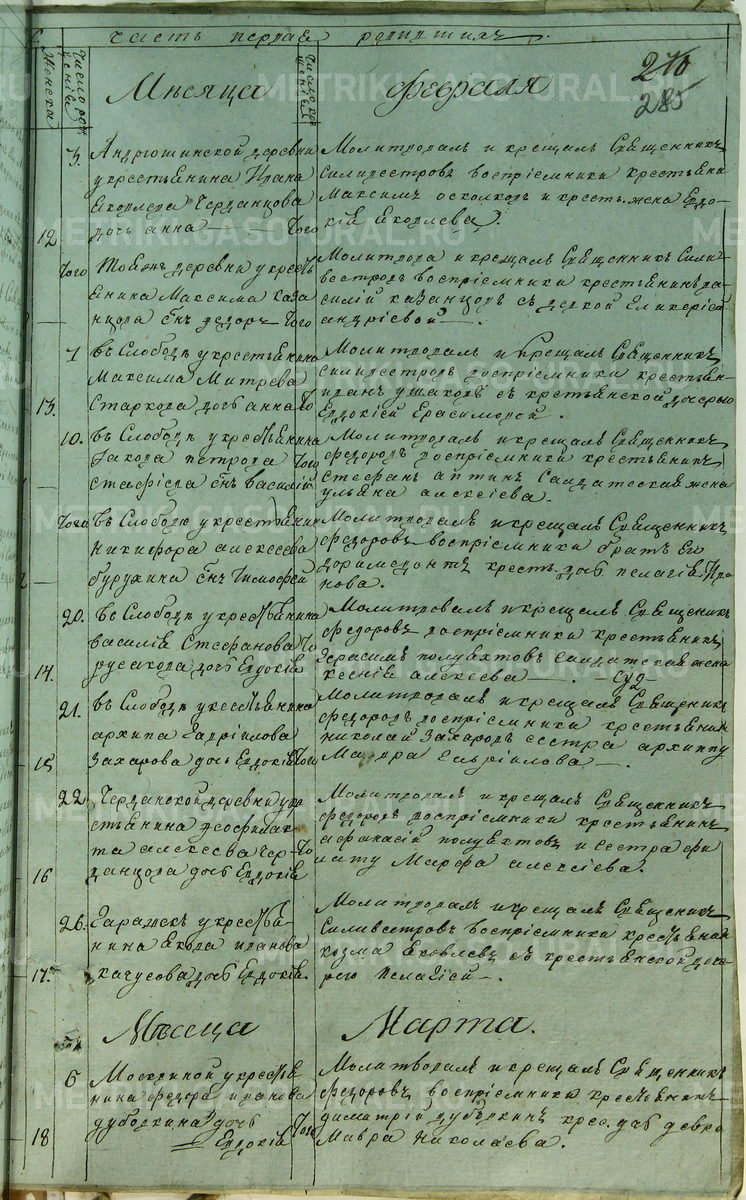 часть первая о родившихся
Число рож
дения
Женска
Число кре
щения
Мѣсяца
февраля
270
285
3. Андрюшинской деревни
у крестьянина Ивана
Яковлева Черданцова
12 дочь анна — Того
Молитвовалъ и крещалъ Священникъ
Силивестровъ воспріемники крестьяни
Максимъ осколковъ и кресть. жена Евдо
кія Яковлева.
Того Тояжъ деревни у кресть
янина Максима Каза
нцова снъ федоръ Того
Молитвова и крещалъ Священникъ Сили
вестровъ воспріемники крестьянинъ ва
силій казанцовъ съ девкой Гликеріей
андріевой —.
7 Въ Слободѣ у крестьянина
Максима Митрева
13. Старкова дочь анна То
Молитвовалъ и крещалъ Священникъ
Силивестровъ воспріемники крестьян
иванъ ушаковъ съ крестьянской дочерью
Евдокіей Ерасимовой.
10. Въ Слободѣ у крестьянина
Іакова петрова
Стафіева снъ василій Того
Молитвовалъ и крещалъ Священникъ
федоровъ воспріемники крестьянинъ
Стефанъ Солдатская жена
ульяна алексіева.
Того Въ Слободѣ у крестьянин
никифора алексеева
бурухина снъ Тимофей
Молитвовалъ и крещалъ Священникъ
федоровъ воспріемники братъ Ево
доримедонтъ кресть. дочь пелагія Ива
нова.
20. Въ Слободѣ у крестьянина
василія Стефанова То
14. русакова дочь Евдокія
Молитвовалъ и крещалъ Священникъ
федоровъ воспріемники крестьянинъ
Герасимъ полуяхтовъ Солдатская жена
ксенія алексеева —.
21. Въ Слободѣ у крестьянина
архипа Гавріилова
15 Захарова дочь Евдокія Того
Молитвовалъ и крещалъ Священник
федоровъ воспріемники крестьянин
николай Захаровъ сестра архиппу
Мавра Гавріилова —.
22. Черданской деревни у кре
стьянина феофилак
та алексеева Чер То
16 данцова дочь Евдокія
Молитвовалъ и крещалъ Священникъ
федоровъ воспріемники крестьянинъ
афанасій полуяхтовъ и сестра фи
лату Марфа алексіева.
26. Гаражек у крестья
нина Якова иванова
17. качусова дочь Евдокія
Молитвовалъ и крещалъ Священник
Силивестровъ воспріемники крестьянин
козма Яковлевъ съ крестьянской доче
рью пелагіей —.
Мѣсяца
Марта.
6 Москвиной у крестья
нина федора иванова
дубовкина дочь Того
18 Евдокія
Молитвовалъ и крещалъ Священникъ
федоровъ воспріемники крестьянинъ
димитрій дубовкинъ крес. дочь девка
Мавра николаева.
METRIKI.GASOTURAL.RU